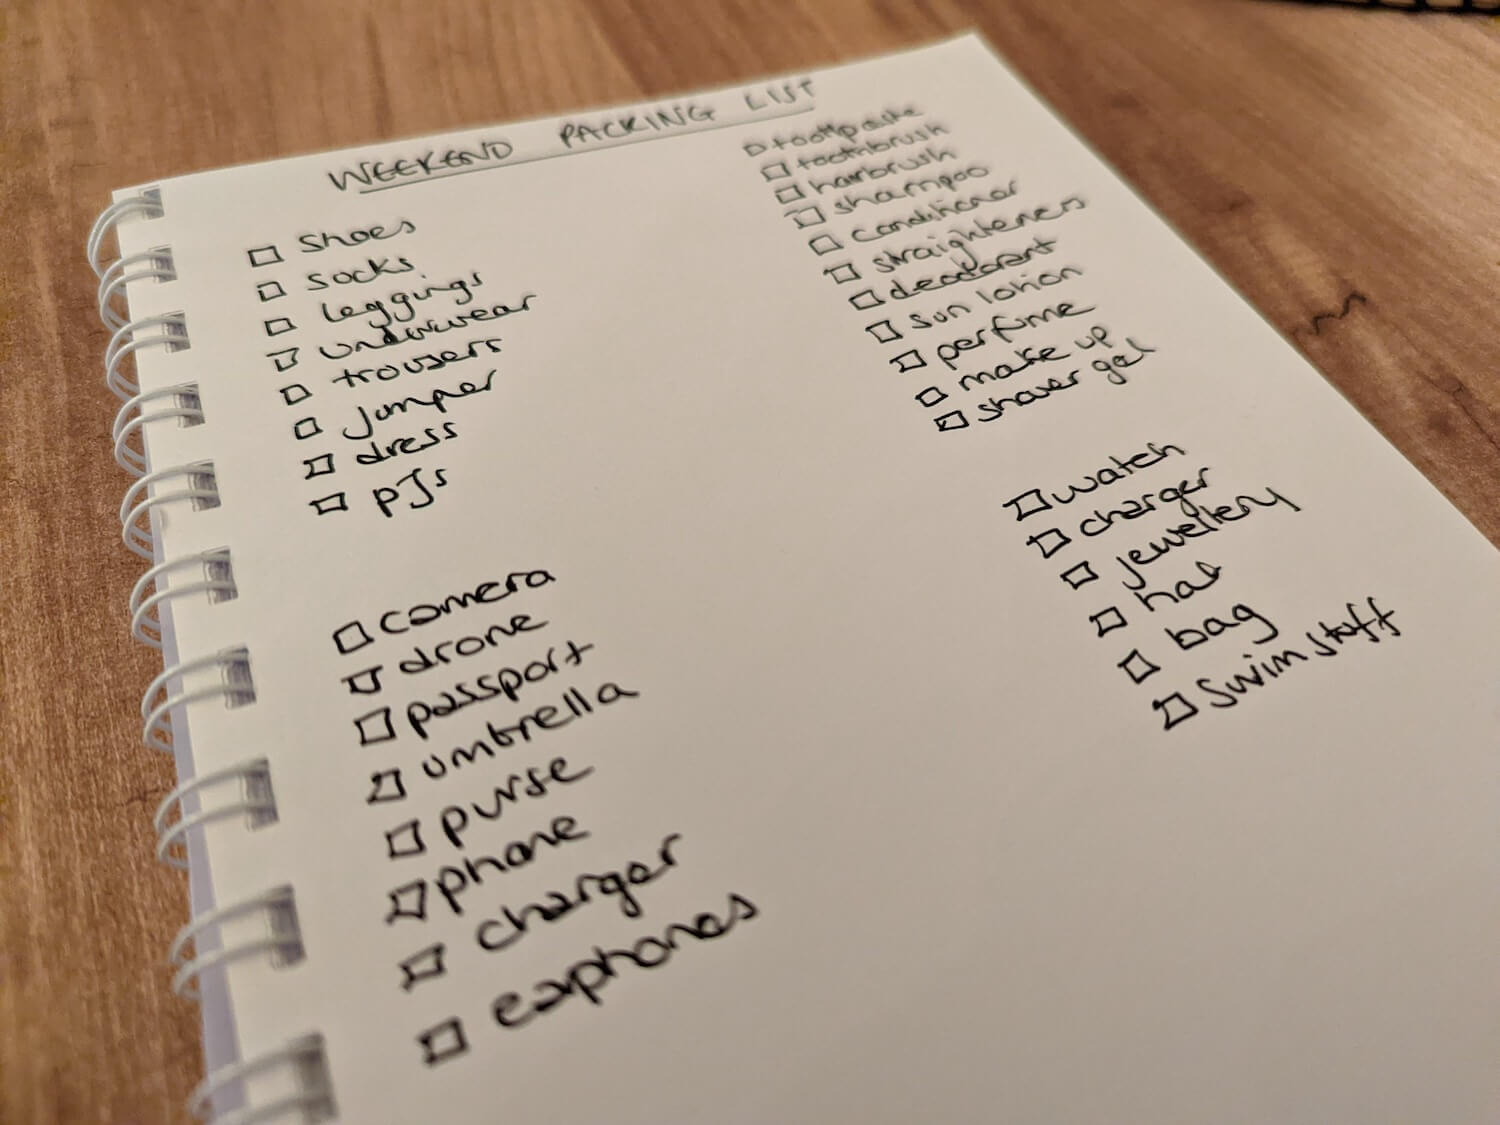 WEEKEND PACKING LIST
shoes
socks
leggings
underwear
trousers
jumper
dress
PJs
camera
drone
passport
umbrella
purse
phone
charger
earphones
toothpaste
toothbrush
hairbrush
shampoo
conditioner
straighteners
deodorant
sun lotion
perfume
make up
shower gel
watch
charger
jewellery
hat
bag
swim stuff